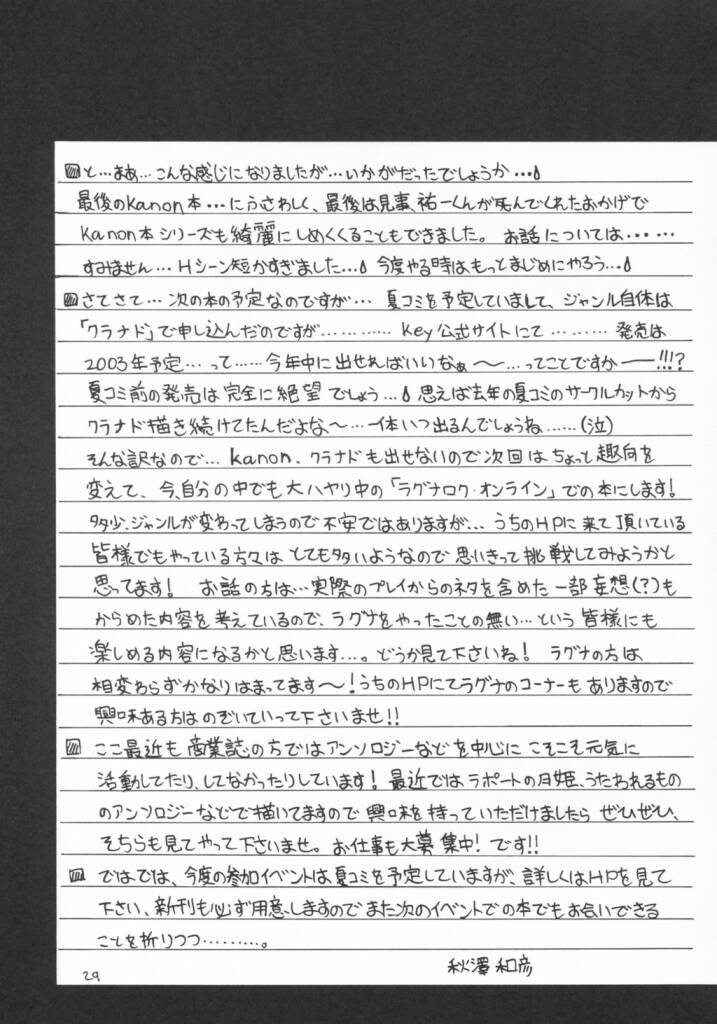 ▨と…まあ…こんな感じになりましたが…いかがだったでしょうか…
最後のKanon本…にふさわしく、最後は見事、祐一くんが死んでくれたおかげで
Kanon本シリーズも綺麗にしめくくることもできました。 お話については……
すみません…Hシーン短かすぎました… 今度やる時はもっとまじめにやろう…
▨さてさて…次の本の予定なのですが… 夏コミを予定していまして、ジャンル自体は
「クラナド」で申し込んだのですが………… Key公式サイトにて……… 発売は
2003年予定…って……今年中に出せればいいなぁ〜…ってことですかー!!!?
夏コミ前の発売は完全に絶望でしょう… 思えば去年の夏コミのサークルカットから
クラナド描き続けてたんだよな〜…一体いつ出るんでしょうね……(泣)
そんな訳なので…kanon、クラナドも出せないので次回はちょっと趣向を
変えて、今、自分の中でも大ハヤリ中の「ラグナロク・オンライン」での本にします!
多少、ジャンルが変わってしまうので不安ではありますが… うちのHPに来て頂いている
皆様でもやっている方々はとても多いようなので思いきって挑戦してみようかと
思ってます! お話の方は…実際のプレイからのネタを含めた一部妄想(?)も
からめた内容を考えているので、ラグナをやったことの無い…という皆様にも
楽しめる内容になるかと思います…。どうか見て下さいね! ラグナの方は
相変わらずかなりはまってます〜!うちのHPにてラグナのコーナーもありますので
興味ある方はのぞいていって下さいませ!!
▨ ここ最近も商業誌の方ではアンソロジーなどを中心にこそこそ元気に
活動してたり、してなかったりしています! 最近ではラポートの月姫、うたわれるもの
のアンソロジーなどで描いてますので興味を持っていただけましたらぜひぜひ、
そちらも見てやって下さいませ。お仕事も大募集中!です!!
▨ ではでは、今度の参加イベントは夏コミを予定していますが、詳しくはHPを見て
下さい、新刊も必ず用意しますのでまた次のイベントでの本でもお会いできる
ことを祈りつつ………。
秋澤 和彦
29